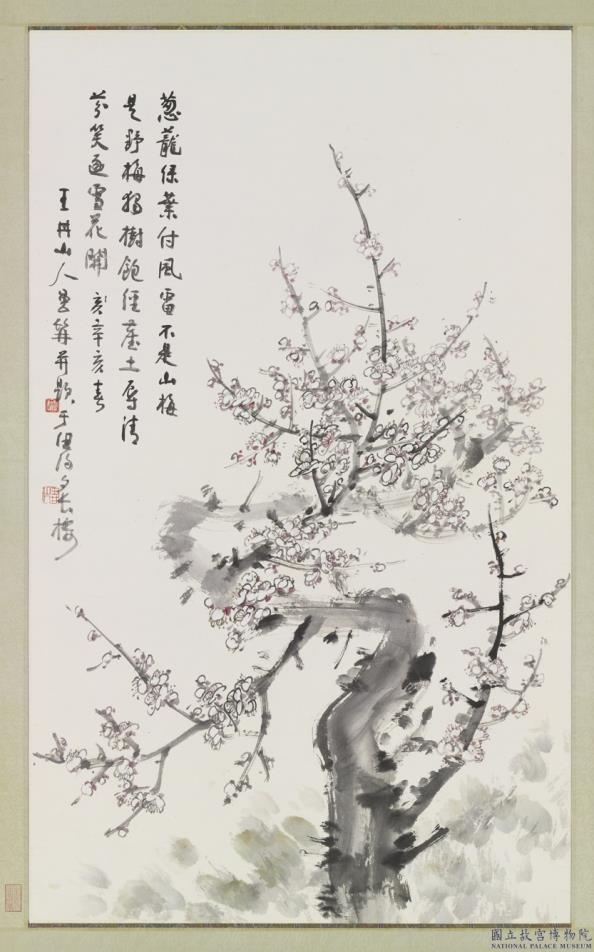 葱蘢綠葉付風雷不是山梅
是野梅獨樹飽經塵土辱清
芬笑逐雪花開 辛亥春
山人并題于樓
國立故宮博物院
NATIONAL PALACE MUSEUM